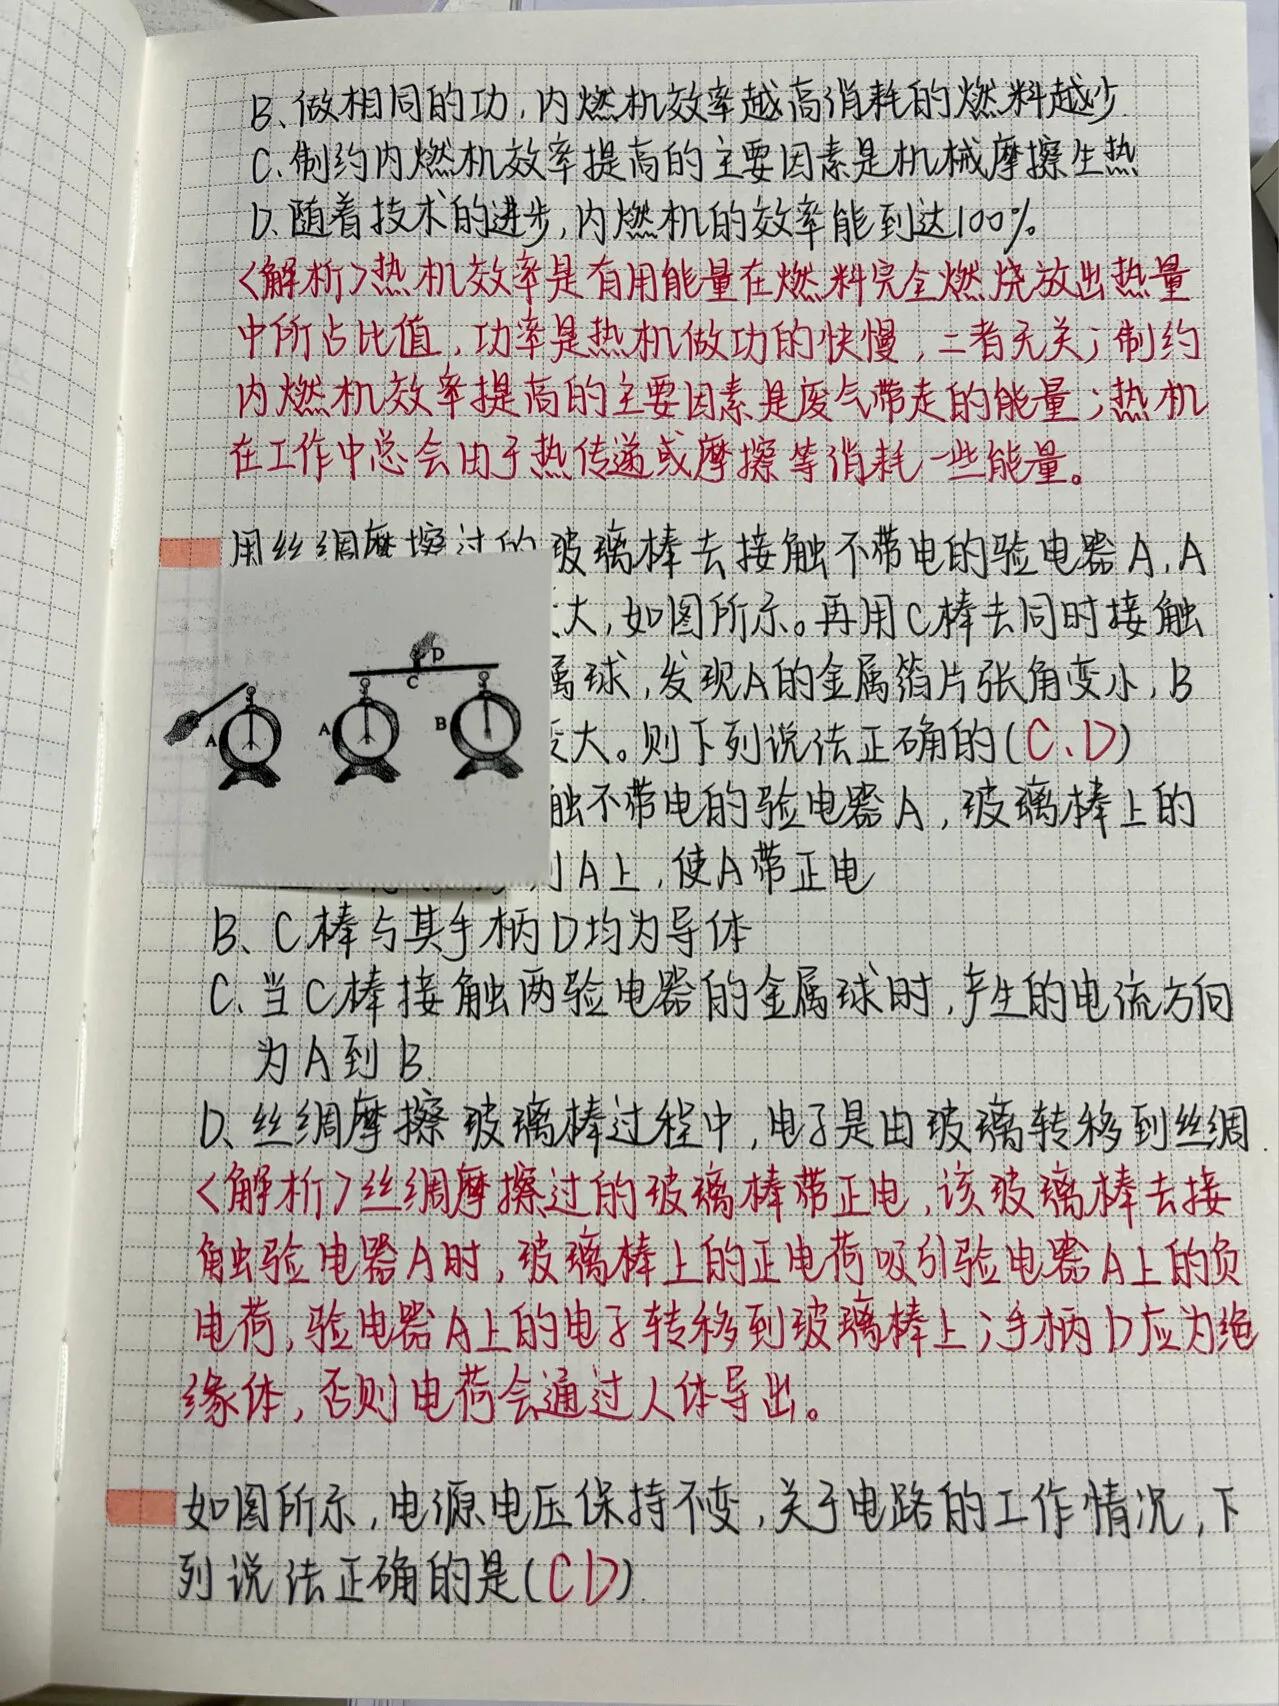 B、做相同的功，内燃机效率越高消耗的燃料越少
C、制约内燃机效率提高的主要因素是机械摩擦生热
D、随着技术的进步，内燃机的效率能到达100%
<解析>热机效率是有用能量在燃料完全燃烧放出热量
中所占比值，功率是热机做功的快慢，二者无关；制约
内燃机效率提高的主要因素是废气带走的能量；热机
在工作中总会由于热传递或摩擦等消耗一些能量。
用丝绸摩擦过的玻璃棒去接触不带电的验电器A，A
大，如图所示。再用C棒去同时接触
属球，发现A的金属箔片张角变小，B
变大。则下列说法正确的(C、D)
触不带电的验电器A，玻璃棒上的
到A上，使A带正电
A
A
B
C
D
B、C棒与其手柄D均为导体
C、当C棒接触两验电器的金属球时，产生的电流方向
为A到B
D、丝绸摩擦玻璃棒过程中，电子是由玻璃转移到丝绸.
<解析>丝绸摩擦过的玻璃棒带正电，该玻璃棒去接
触验电器A时，玻璃棒上的正电荷吸引验电器A上的负
电荷，验电器A上的电子转移到玻璃棒上；手柄D应为绝
缘体，否则电荷会通过人体导出。
如图所示，电源电压保持不变，关于电路的工作情况，下
列说法正确的是(CD)